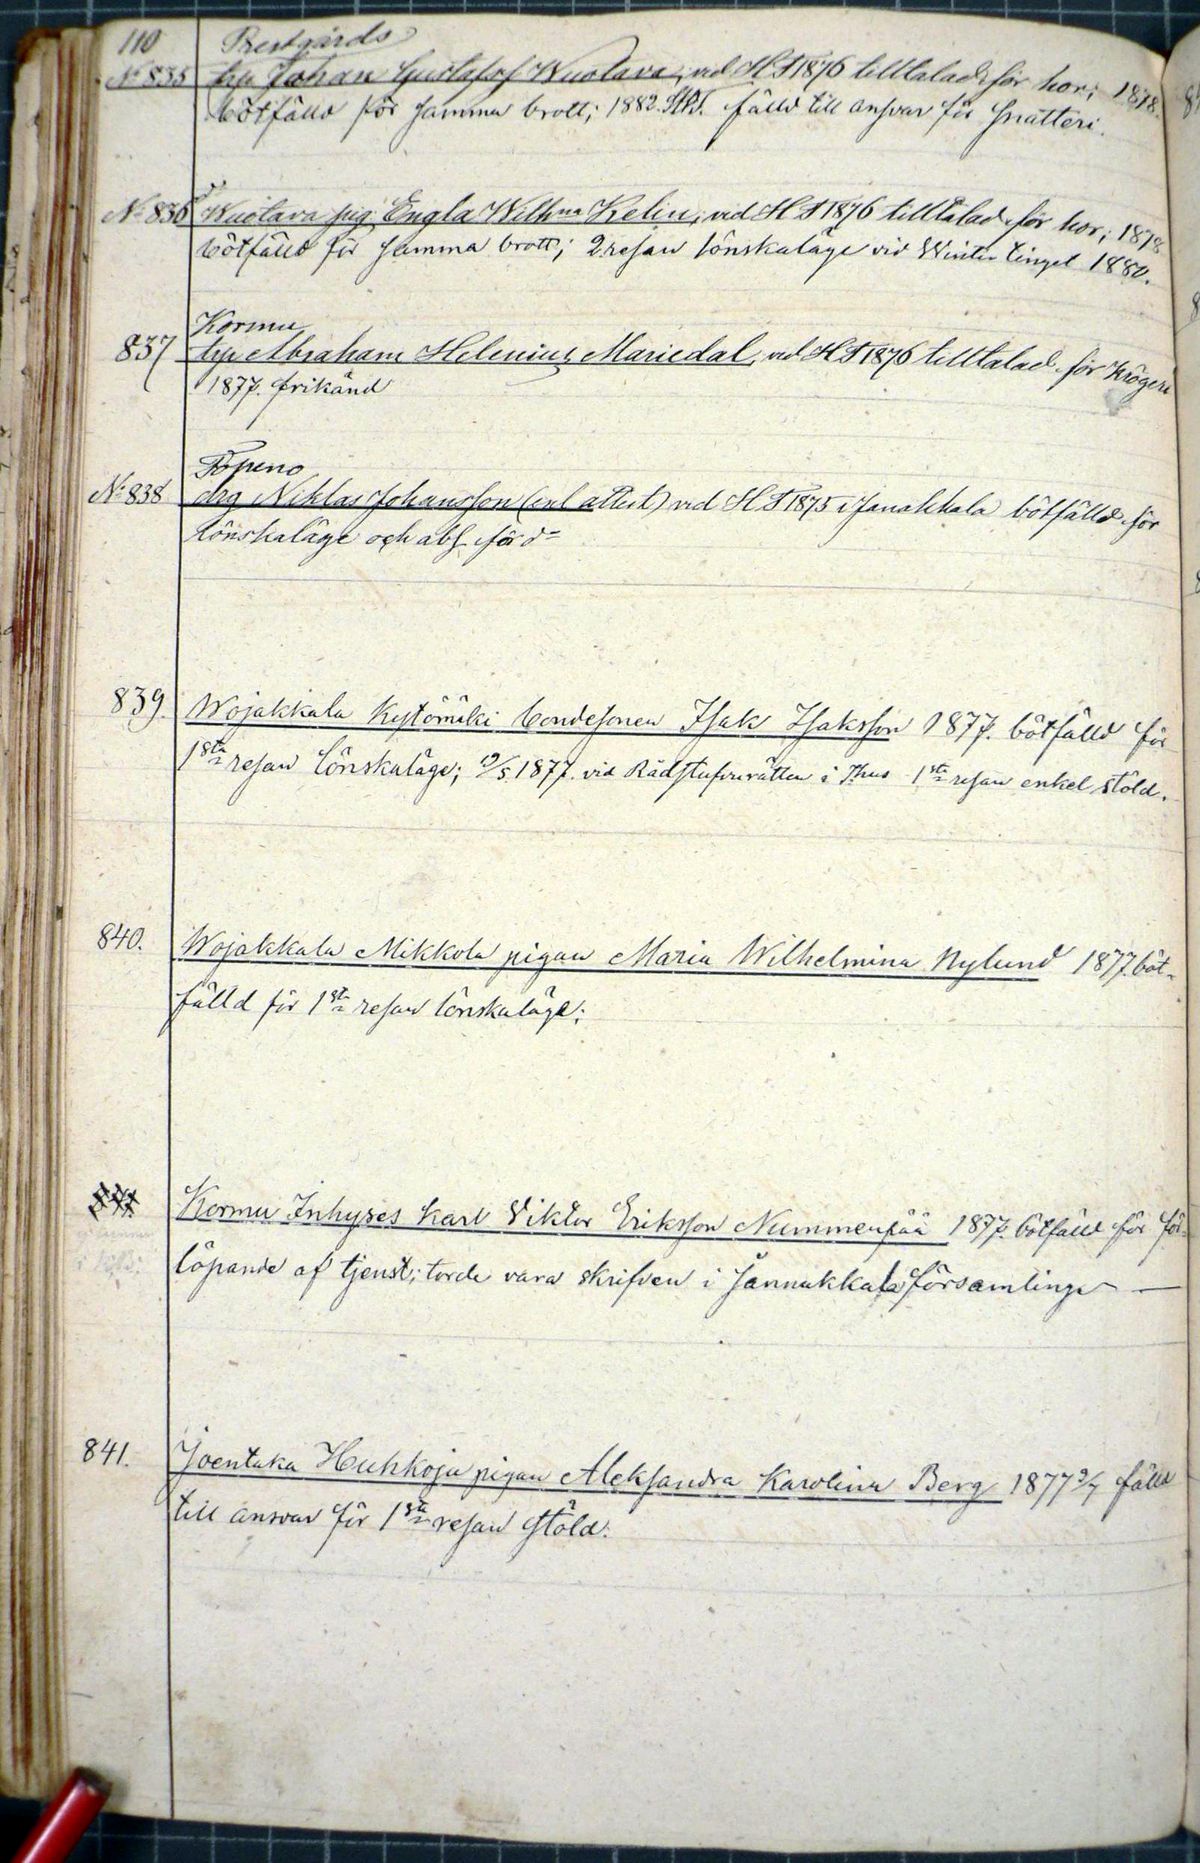 110
Prestgårds
No 835 trp Johan Gustafss Wuotava, vid H T 1876 tilltalad för hor; 1878.
bötfälld för samma brott; 1882 fälld till ansvar för snatteri.
No 836 Wuotava pig. Engla Wilhna Kelin, vid H T 1876 tilltalad för hor; 1878
bötfälld för samma brott; 2 resan lönskaläge vid Winter tinget 1880.
Kormu
837 trp Abraham Helenius Mariedal, vid H T 1876 tilltalad för krögeri
1877. frikänd
Töpeno
No 838 drg Niklas Johansson (enl attest) vid H T 1875 i Janakkala bötfälld för
lönskaläge och abs. för do
839. Wojakkala Kystömäki bondesonen Isak Isaksson 1877. bötfälld för
1sta resan lönskaläge; 19/5 1877. vid Rådstufvurätten i Thus 1sta resan enkel stöld.
840. Wojakkala Mikkola pigan Maria Wilhelmina Nylund 1877. böt-
fälld för 1sta resan lönskaläge;
841. Kormu Inhyses Karl Viktor Eriksson Nummenpää 1877. bötfälld för för-
löpande af tjenst; torde vara skrifven i Jannakkala församling —
841. Joentaka Huhkoja pigan Aleksandra Karolina Berg 1877 2/7 fälld
till ansvar för 1sta resan stöld.